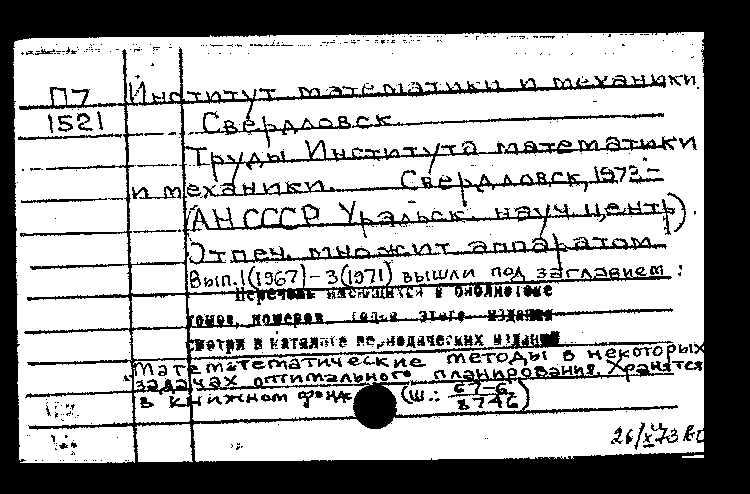 П7 Институт математики и механики
1521 Свердловск.
Труды Института математики
и механики. Свердловск, 1973-
(АН СССР Уральск. науч. центр).
Отпеч. множит аппаратом
Вып.1(1967)-3(1971) вышли под заглавием:
Перечень имеющихся в библиотеке
томов, номеров годов этого издания
смотри в каталоге периодических изданий
"Математематические методы в некоторых
задачах оптимального планирования. Хранятся
в книжном фонде (Ш.: 67-6
8746)
26/X 73